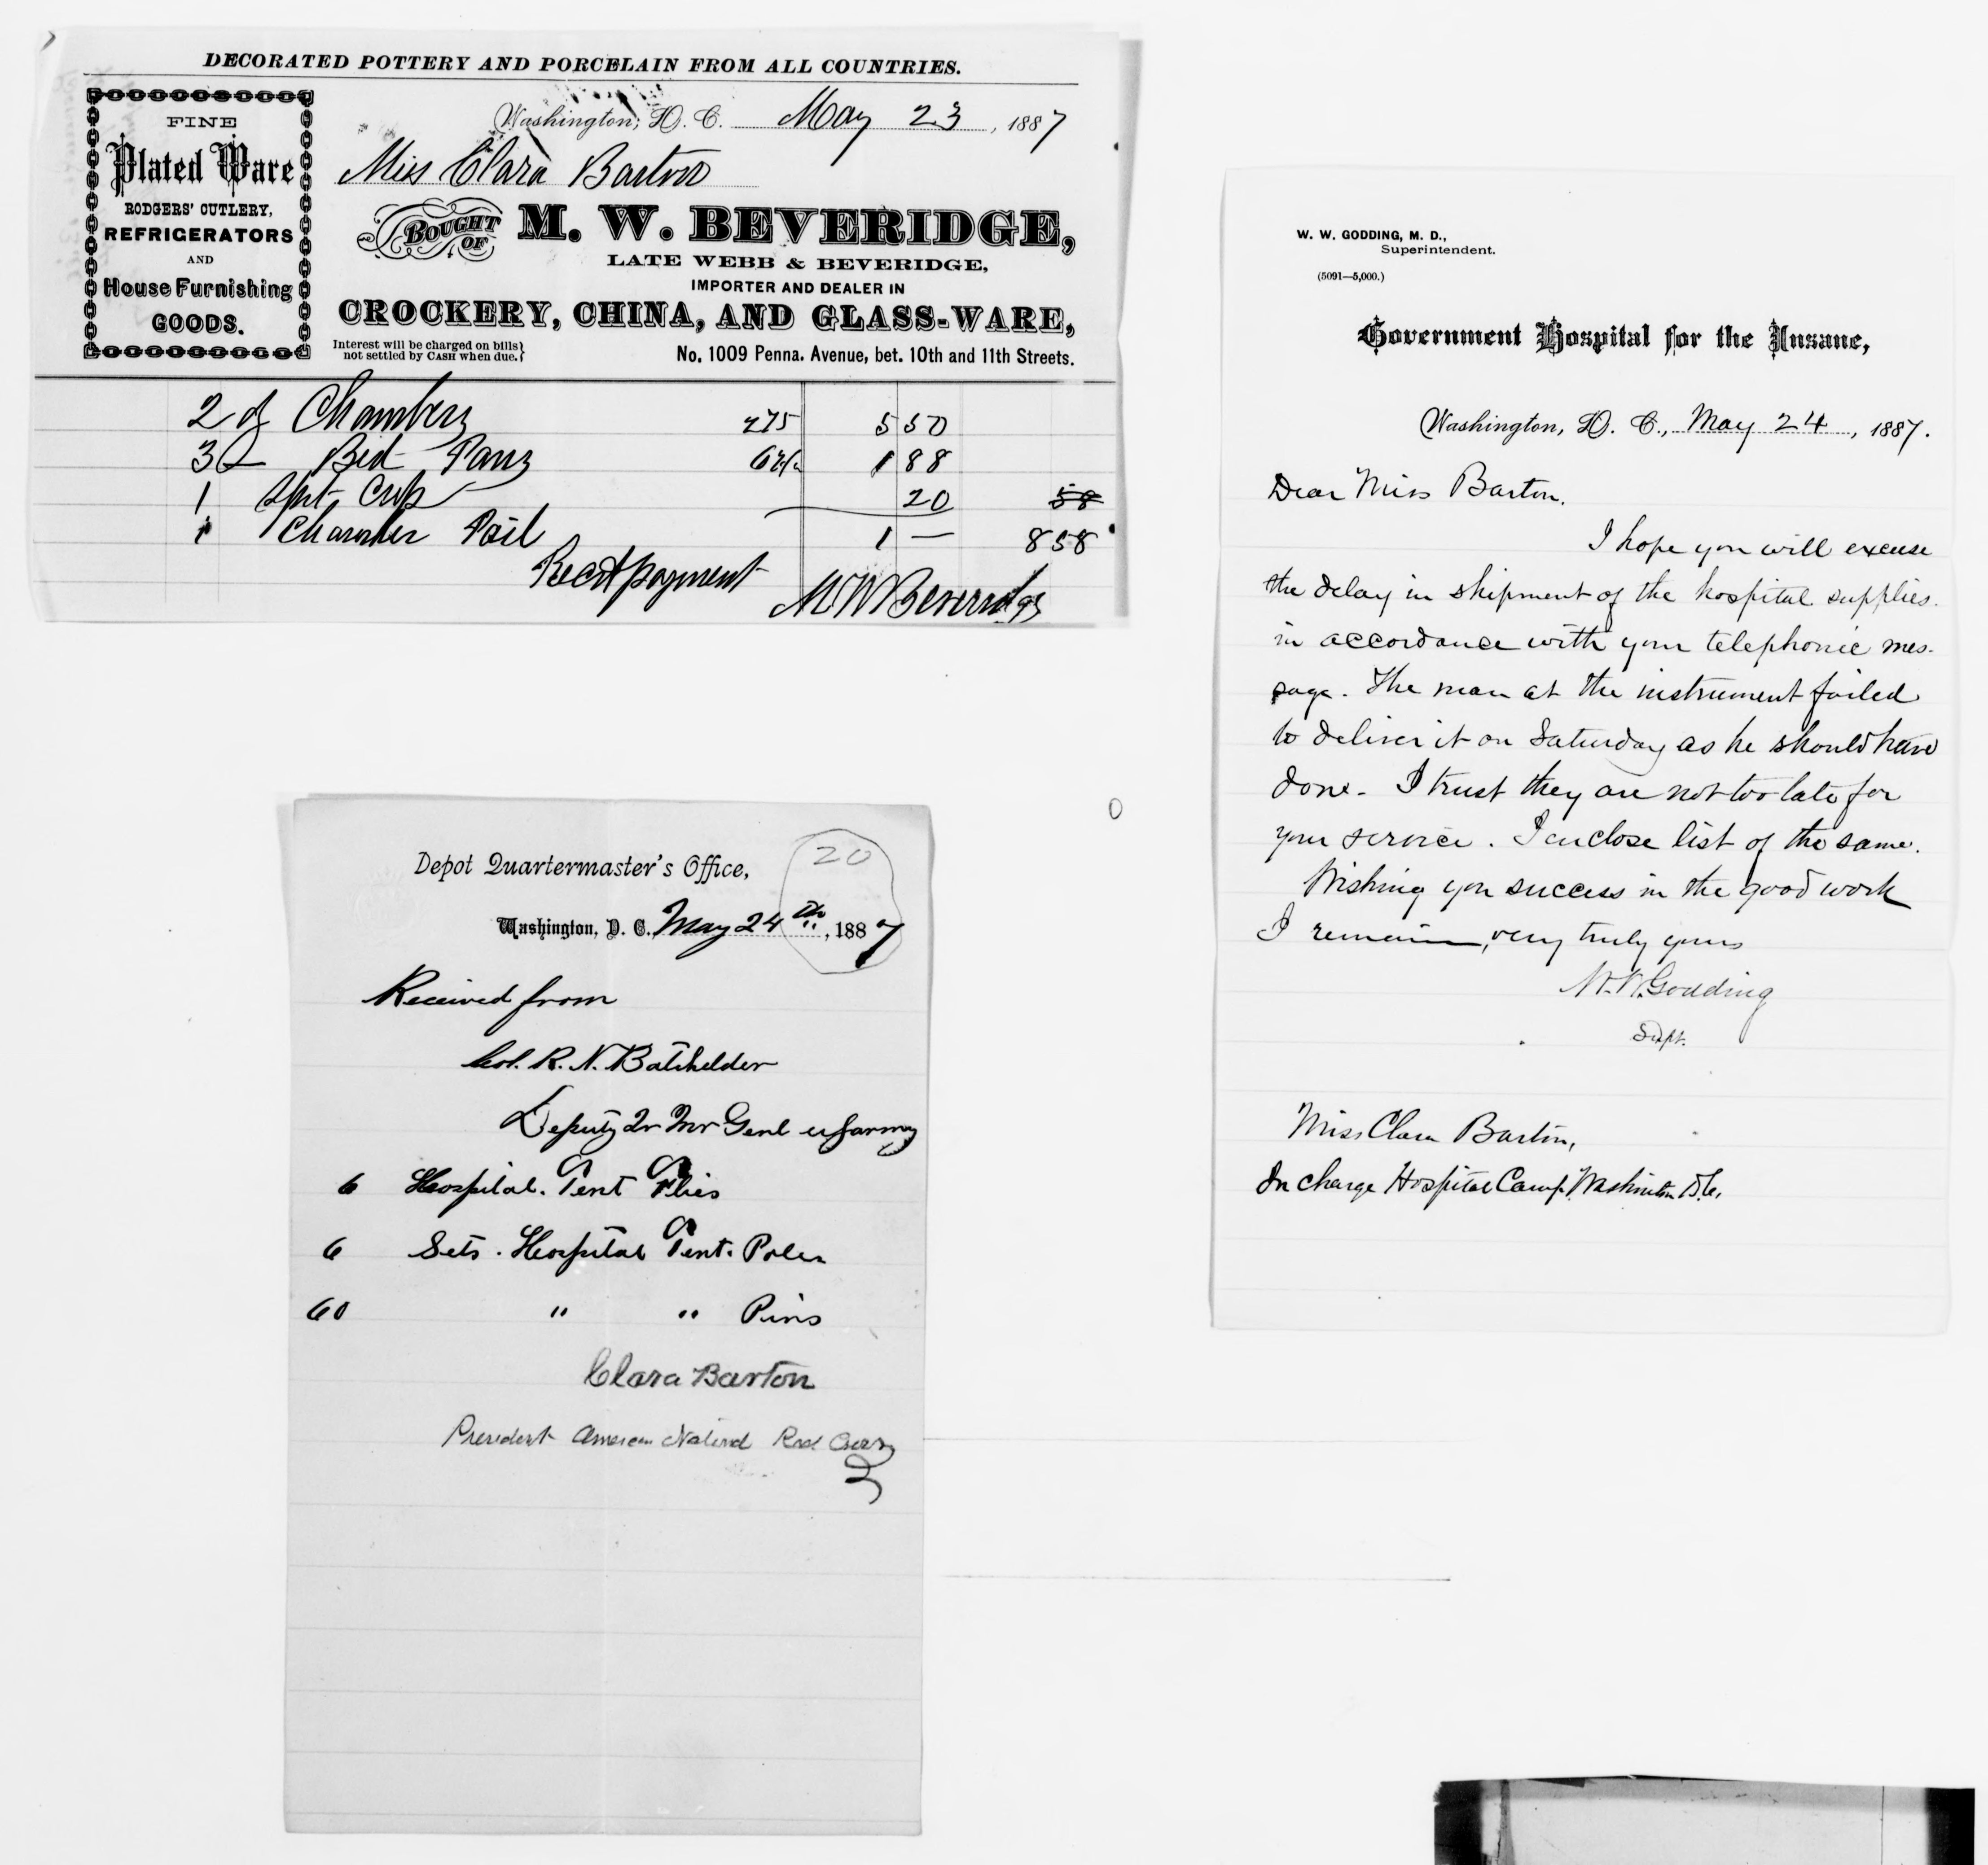 DECORATED POTTERY AND PORCELAIN FROM ALL COUNTRIES.
FINE
Plated Ware
RODGERS' CUTLERY,
REFRIGERATORS
AND
House Furnishing
GOODS.
Washington, D. C. May 23, 1887
Miss Clara Barton
BOUGHT OF M. W. BEVERIDGE,
LATE WEBB & BEVERIDGE,
IMPORTER AND DEALER IN
CROCKERY, CHINA, AND GLASS-WARE,
Interest will be charged on bills
not settled by CASH when due.
No. 1009 Penna. Avenue, bet. 10th and 11th Streets.
2 Chambers 275 5 50
3 Bed Pans 1 88
1 Cup 20 58
1 Chamber Pail 1 — 8 58
Recd payment
M W Beveridge
Depot Quartermaster's Office,
20
Washington, D. C. May 24th, 1887
Received from
Col. R. N. Batchelder
Deputy Qr Mr Genl US Army
6 Hospital Tent Flies
6 Sets. Hospital Tent Poles
60 " " Pins
Clara Barton
President American National Red Cross
W. W. GODDING, M. D.,
Superintendent.
(5091—5,000.)
Government Hospital for the Insane,
Washington, D. C., May 24, 1887.
Dear Miss Barton.
I hope you will excuse
the delay in shipment of the hospital supplies
in accordance with your telephonic mes-
sage. The man at the instrument failed
to deliver it on Saturday as he should have
done. I trust they are not too late for
your service. I enclose list of the same.
Wishing you success in the good work
I remain, very truly yours
W. W. Godding
Supt.
Miss Clara Barton,
In charge Hospital Camp. Washington D.C.